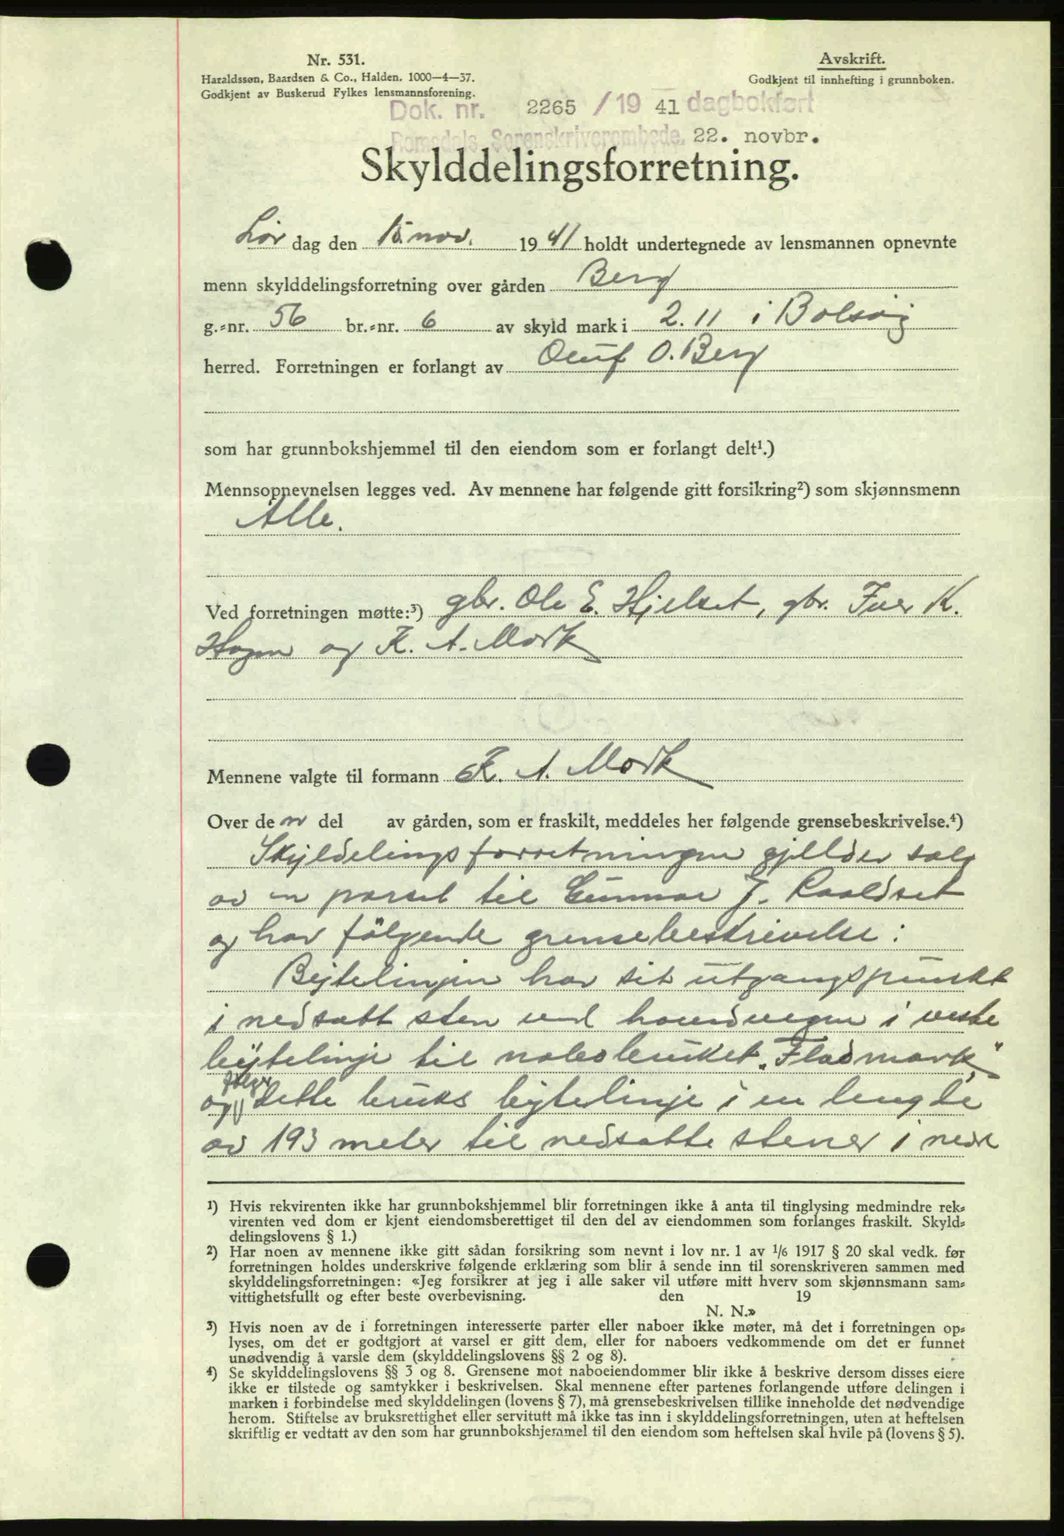 Nr. 531.
Haraldssøn, Baardsen & Co., Halden. 1000—4—37.
Godkjent av Buskerud Fylkes lensmannsforening.
Avskrift.
Godkjent til innhefting i grunnboken.
Dok. nr. 2265 / 19 41 dagbokført
Romsdals Sorenskriverembede. 22. novbr.
Skylddelingsforretning.
Lør dag den 15 nov. 19 41 holdt undertegnede av lensmannen opnevnte
menn skylddelingsforretning over gården Berg
g.-nr. 56 br.-nr. 6 av skyld mark i 2.11 i Bolsøy
herred. Forretningen er forlangt av Oluf O. Berg
som har grunnbokshjemmel til den eiendom som er forlangt delt¹.)
Mennsopnevnelsen legges ved. Av mennene har følgende gitt forsikring²) som skjønnsmenn
Alle.
Ved forretningen møtte:³) gbr. Ole E. Hjelset, gbr. Iver K.
Hagen og K. A. Mork
Mennene valgte til formann K. A. Mork
Over de n del av gården, som er fraskilt, meddeles her følgende grensebeskrivelse.⁴)
Skyldelingsforretningen gjelder salg
av en parsel til Gunnar J. Raaldset
og har følgende grensebeskrivelse:
Bejtelinjen har sit utgangspunkt
i nedsatt sten ved hovedvegen i veste
bejtelinje til nabobruket „Fladmark"
og følger dette bruks bejtelinje i en lengde
av 193 meter til nedsatte stener i nedre
¹) Hvis rekvirenten ikke har grunnbokshjemmel blir forretningen ikke å anta til tinglysing medmindre rek-
virenten ved dom er kjent eiendomsberettiget til den del av eiendommen som forlanges fraskilt. Skyld-
delingslovens § 1.)
²) Har noen av mennene ikke gitt sådan forsikring som nevnt i lov nr. 1 av ¹/6 1917 § 20 skal vedk. før
forretningen holdes underskrive følgende erklæring som blir å sende inn til sorenskriveren sammen med
skylddelingsforretningen: «Jeg forsikrer at jeg i alle saker vil utføre mitt hverv som skjønnsmann sam-
vittighetsfullt og efter beste overbevisning. den 19
N. N.»
³) Hvis noen av de i forretningen interesserte parter eller naboer ikke møter, må det i forretningen op-
lyses, om det er godtgjort at varsel er gitt dem, eller for naboers vedkommende om det er funnet
unødvendig å varsle dem (skylddelingslovens §§ 2 og 8).
⁴) Se skylddelingslovens §§ 3 og 8. Grensene mot naboeiendommer blir ikke å beskrive dersom disses eiere
ikke er tilstede og samtykker i beskrivelsen. Skal mennene efter partenes forlangende utføre delingen i
marken i forbindelse med skylddelingen (lovens § 7), må grensebeskrivelsen tillike inneholde det nødvendige
herom. Stiftelse av bruksrettighet eller servitutt må ikke tas inn i skylddelingsforretningen, uten at heftelsen
skriftlig er vedtatt av den som har grunnbokshjemmel til den eiendom som heftelsen skal hvile på (lovens § 5).